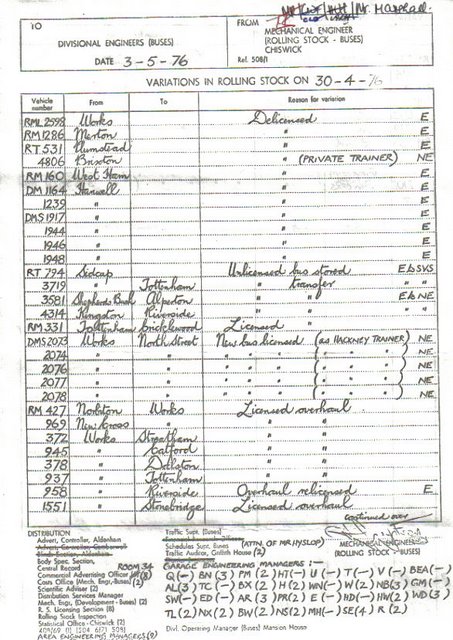 TO
DIVISIONAL ENGINEERS (BUSES)
DATE 3-5-76
FROM
MECHANICAL ENGINEER
(ROLLING STOCK - BUSES)
CHISWICK
Ref. 508/1
VARIATIONS IN ROLLING STOCK ON 30-4-76
Vehicle number From To Reason for variation
RML 2598 Works Delicensed E
RM 1286 Merton " E
RT 531 Plumstead " E
4806 Brixton " (PRIVATE TRAINER) NE
RM 160 West Ham " E
DM 1164 Hanwell " E
1239 " " E
DMS 1917 " " E
1944 " " E
1946 " " E
1948 " " E
RT 794 Sidcup Unlicensed bus stored E to SVS
3719 " Tottenham " transfer " "
3581 Shepherds Bush Alperton " " E to NE
4314 Kingston Riverside " " " "
RM 331 Tottenham Cricklewood Licensed E
DMS 2073 Works North Street New bus licensed (as HACKNEY TRAINER) NE
2074 " " " " " ( " " " ) NE
2076 " " " " " ( " " " ) NE
2077 " " " " " ( " " " ) NE
2078 " " " " " ( " " " ) NE
RM 427 Norbiton Works Licensed overhaul
969 New Cross " " "
372 Works Streatham " "
945 " Catford " "
378 " Dalston " "
937 " Tottenham " "
958 " Riverside Overhaul relicensed E
1551 " Stonebridge Licensed overhaul
continued over
MECHANICAL ENGINEER
(ROLLING STOCK - BUSES)
DISTRIBUTION
Advert. Controller, Aldenham
Body Spec. Section,
Central Record ROOM 34
Commercial Advertising Officer (8)
Costs Office (Mech. Engr.-Buses) (2)
Scientific Adviser (2)
Distribution Services Manager
Mech. Engr. (Development - Buses) (2)
R. S. Licensing Section (8)
Rolling Stock Inspection
Statistical Office - Chiswick (2)
Traffic Supt. (Buses)
Schedules Supt. (ATTN. OF MR HYSLOP)
Traffic Audit, Griffith House (2)
GARAGE ENGINEERING MANAGERS :-
Q(-) BN(3) PM(2) HT(-) U(-) T(-) V(-) BEA(-)
AL(3) TC(-) BX(2) H(2) WN(-) W(2) NB(3) GM(-)
SW(-) ED(-) AR(3) PR(2) E(-) HD(-) HW(2) WD(3)
TL(2) NX(2) BW(2) NS(2) MH(-) SE(4) R(2)
Divl. Operating Manager (Buses) Mansion House